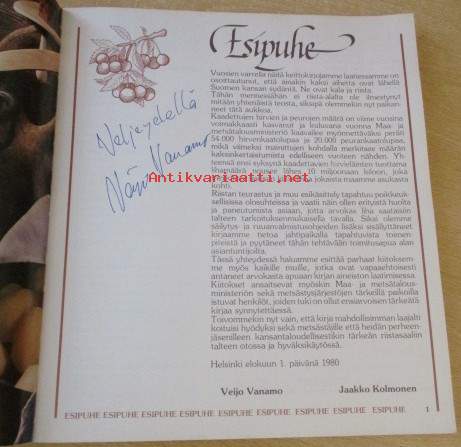 Esipuhe
Vuosien varrella näitä keittokirjojamme laatiessamme on
osoittautunut, että ainakin kaksi aihetta ovat lähellä
Suomen kansan sydäntä. Ne ovat kala ja riista.
Tähän mennessähän ei riista-alalta ole ilmestynyt
mitään yhtenäistä teosta, siksipä olemmekin nyt paikan-
neet tätä aukkoa.
Kaadettujen hirvien ja peurojen määrä on viime vuosina
voimakkaasti kasvanut ja kuluvana vuonna Maa- ja
metsätalousministeriö kaavailee myönnettäväksi peräti
54.000 hirvenkaatolupaa ja 20.000 peurankaatolupaa,
mikä viimeksi mainittujen kohdalla merkitsee määrän
kaksinkertaistumista edelliseen vuoteen nähden. Yh-
teensä ensi syksynä kaadettavien hirvieläinten tuottama
lihamäärä nousee lähes 10 miljoonaan kiloon, joka
jokaista maamme asukasta
kohti.
Riistan teurastus ja muu esikäsittely tapahtuu poikkeuk-
sellisissa olosuhteissa ja vaatii näin ollen erityistä huolta
ja paneutumista asiaan, jotta arvokas liha saataisiin
talteen tarkoituksenmukaisella tavalla. Siksi olemme
säilytys- ja ruuanvalmistusohjeiden lisäksi sisällyttäneet
kirjaamme tietoa jahtipaikalla tapahtuvista toimen-
piteistä ja pyytäneet tähän tehtävään toimitusapua alan
asiantuntijoilta.
Tässä yhteydessä haluamme esittää parhaat kiitoksem-
me myös kaikille muille, jotka ovat vapaaehtoisesti
antaneet arvokasta apuaan kirjan aineiston laatimisessa.
Kiitokset ansaitsevat myöskin Maa- ja metsätalous-
ministeriön sekä metsästysjärjestöjen tärkeillä paikoilla
istuvat henkilöt, joiden tuki on ollut ensiarvoisen tärkeätä
kirjaa synnytettäessä.
Toivommekin nyt vain, että kirja mahdollisimman laajalti
koituisi hyödyksi sekä metsästäjille että heidän perheen-
jäsenilleen kansantaloudellisestikin tärkeän riistasaaliin
talteen otossa ja hyväksikäytössä.
Helsinki elokuun 1. päivänä 1980
Veijo Vanamo Jaakko Kolmonen
ESIPUHE ESIPUHE ESIPUHE ESIPUHE ESIPUHE ESIPUHE ESIPUHE ESIPUHE 1
Veljeydellä
Vanamo
Antikvariaatti.net